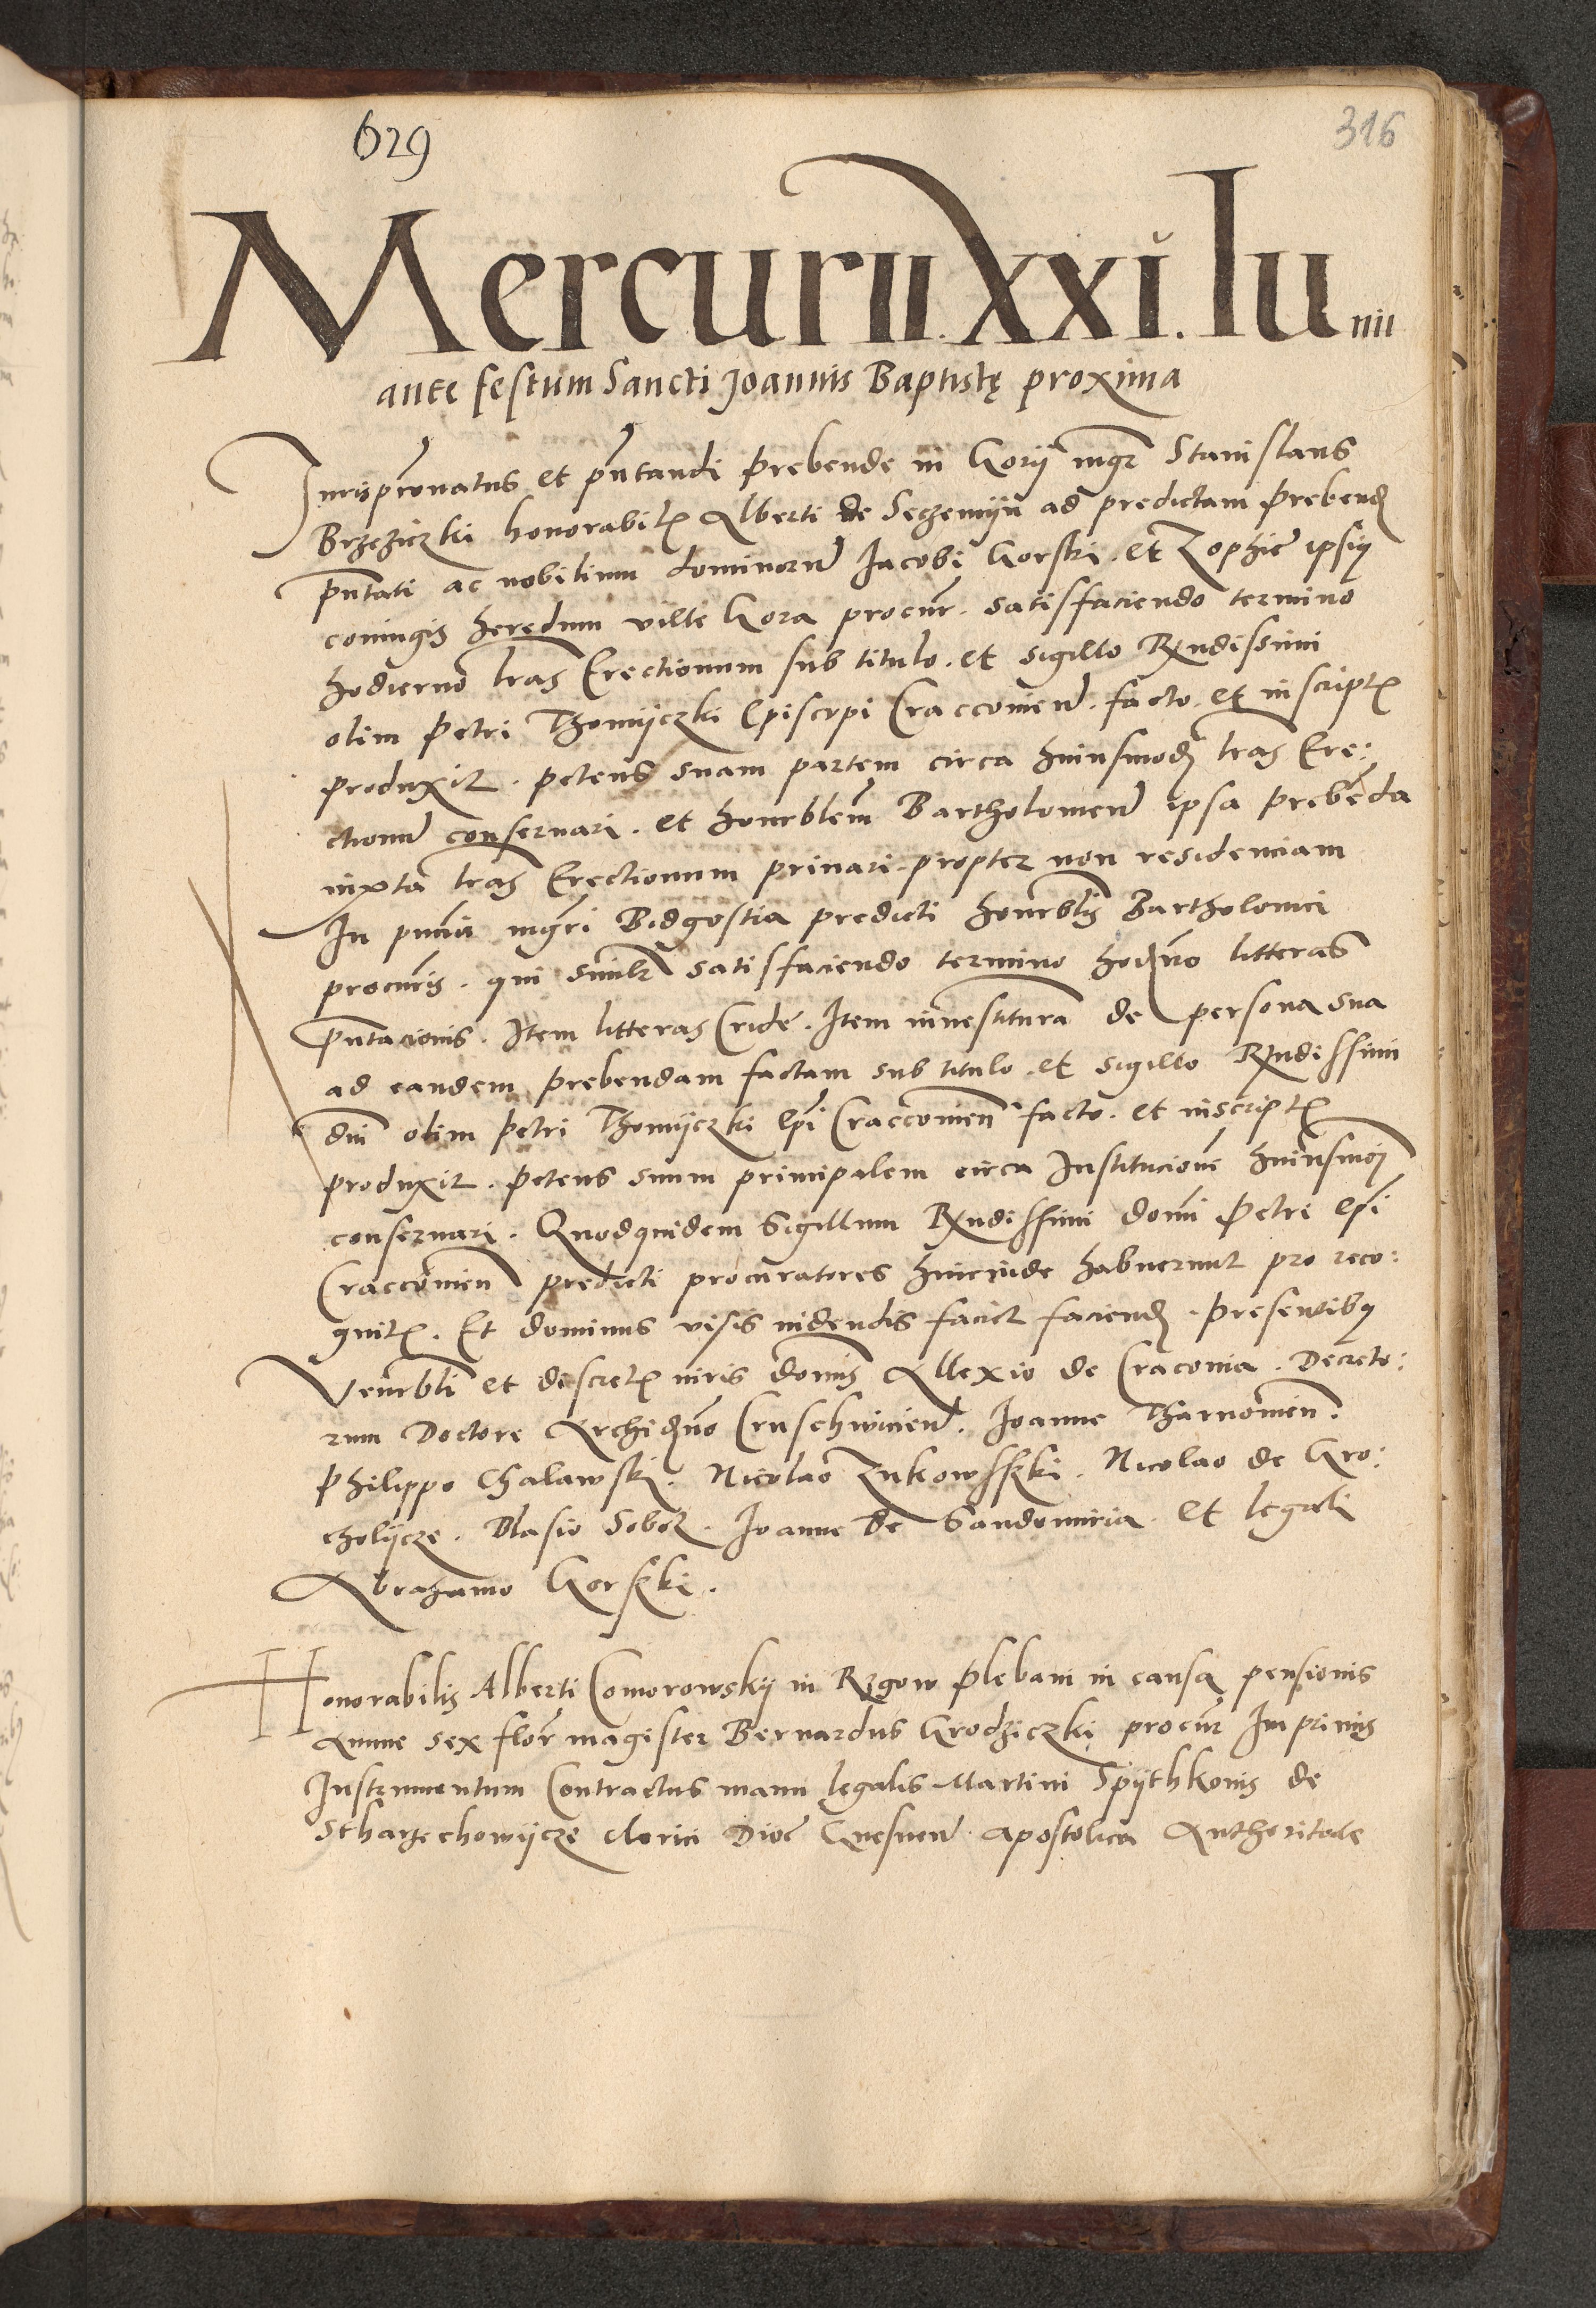 629
316
Mercurii XXI. Iunii
ante festum Sancti Joannis Baptistę proxima
Jurisp̄ronatus et p̄ntandi prebende in Gorij mgr̄ Stanislaus
Brzeziczki honorabil̄ Alberti de Seczemijn ad predictam prebend̄
p̄ntati ac nobilium dominorū Jacobi Gorski. et Zophie ipsiꝰ
coniugis heredum ville Gora procur̄. satisfaciendo termino
hodierno lr̄as Erectionum sub titulo. et sigillo Rn̄dissimi
olim Petri Thomijczki Episcopi Craccovien̄. facto. et inscript̄
produxit. petens suam partem circa huiusmod̄ lr̄as Ere:
ctionū conseruari. et honrblem̄ Bartholomeū ipsa prebēda
iuxta lr̄as Erectionum priuari propter non residenciam
In pn̄cia mgr̄i Bidgostia predicti honrblis̄ Bartholomei
procur̄is. qui simlr̄ satisfaciendo termino hodierno litteras
p̄ntacionis. Item litteras Cride. Item inuestiturā de persona sua
ad eandem prebendam factam sub titulo et sigillo Rn̄dissimi
dn̄i olim Petri Thomijczki Ep̄i Craccouien̄ facto. et inscript̄
produxit. petens suum principalem circa Institucionē huiusmod̄
conseruari. Quodquidem Sigillum Rn̄dissimi domī Petri Ep̄i
Craccouien̄ predicti procuratores hincinde habuerunt pro reco:
gnit̄. Et dominus visis uidendis faciet faciend̄. presentibꝰ
Venrbli et discret̄ uiris domīs Allexio de Craconia. Decreto:
rum Doctore Archid̄no Cruschwicien̄. Joanne Tharnouien̄.
Philippo Chalawski. Nicolao Zukowsski. Nicolao de Gro:
cholijcze. Blasio Sobek. Joanne de Sandomiria. et legali
Abrahamo Gorsski.
Honorabilis Alberti Comorowskij in Rzgow plebani in causa pensionis
Annue sex flor̄ magister Bernardus Grodziczki procur̄ Inprimis
Instrumentum Contractus manu legalis Martini Spijthkonis de
Stharzechowijcze clerici Dioc̄ Gnesnen̄ apostolica Authoritate